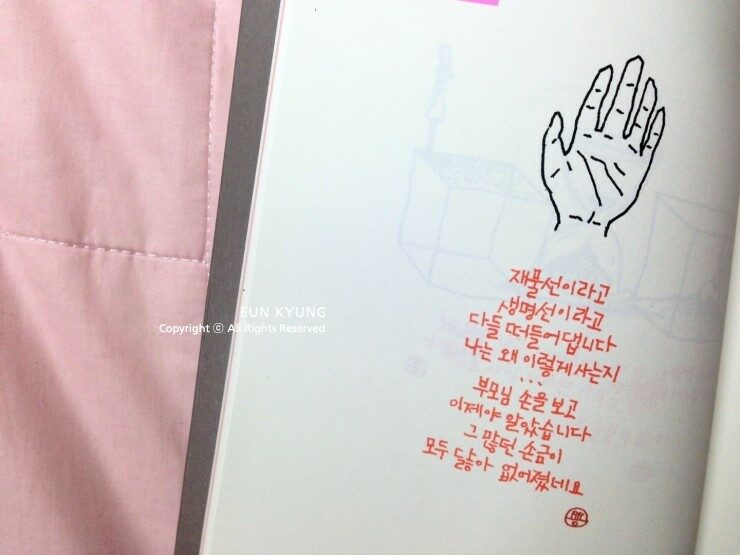 재물선이라고
생명선이라고
다들 떠들어댑니다
나는 왜 이렇게 사는지
...
부모님 손을 보고
이제야 알았습니다
그 많던 손금이
모두 닳아 없어졌네요
EUN KYUNG
Copyright ⓒ All Rights Reserved